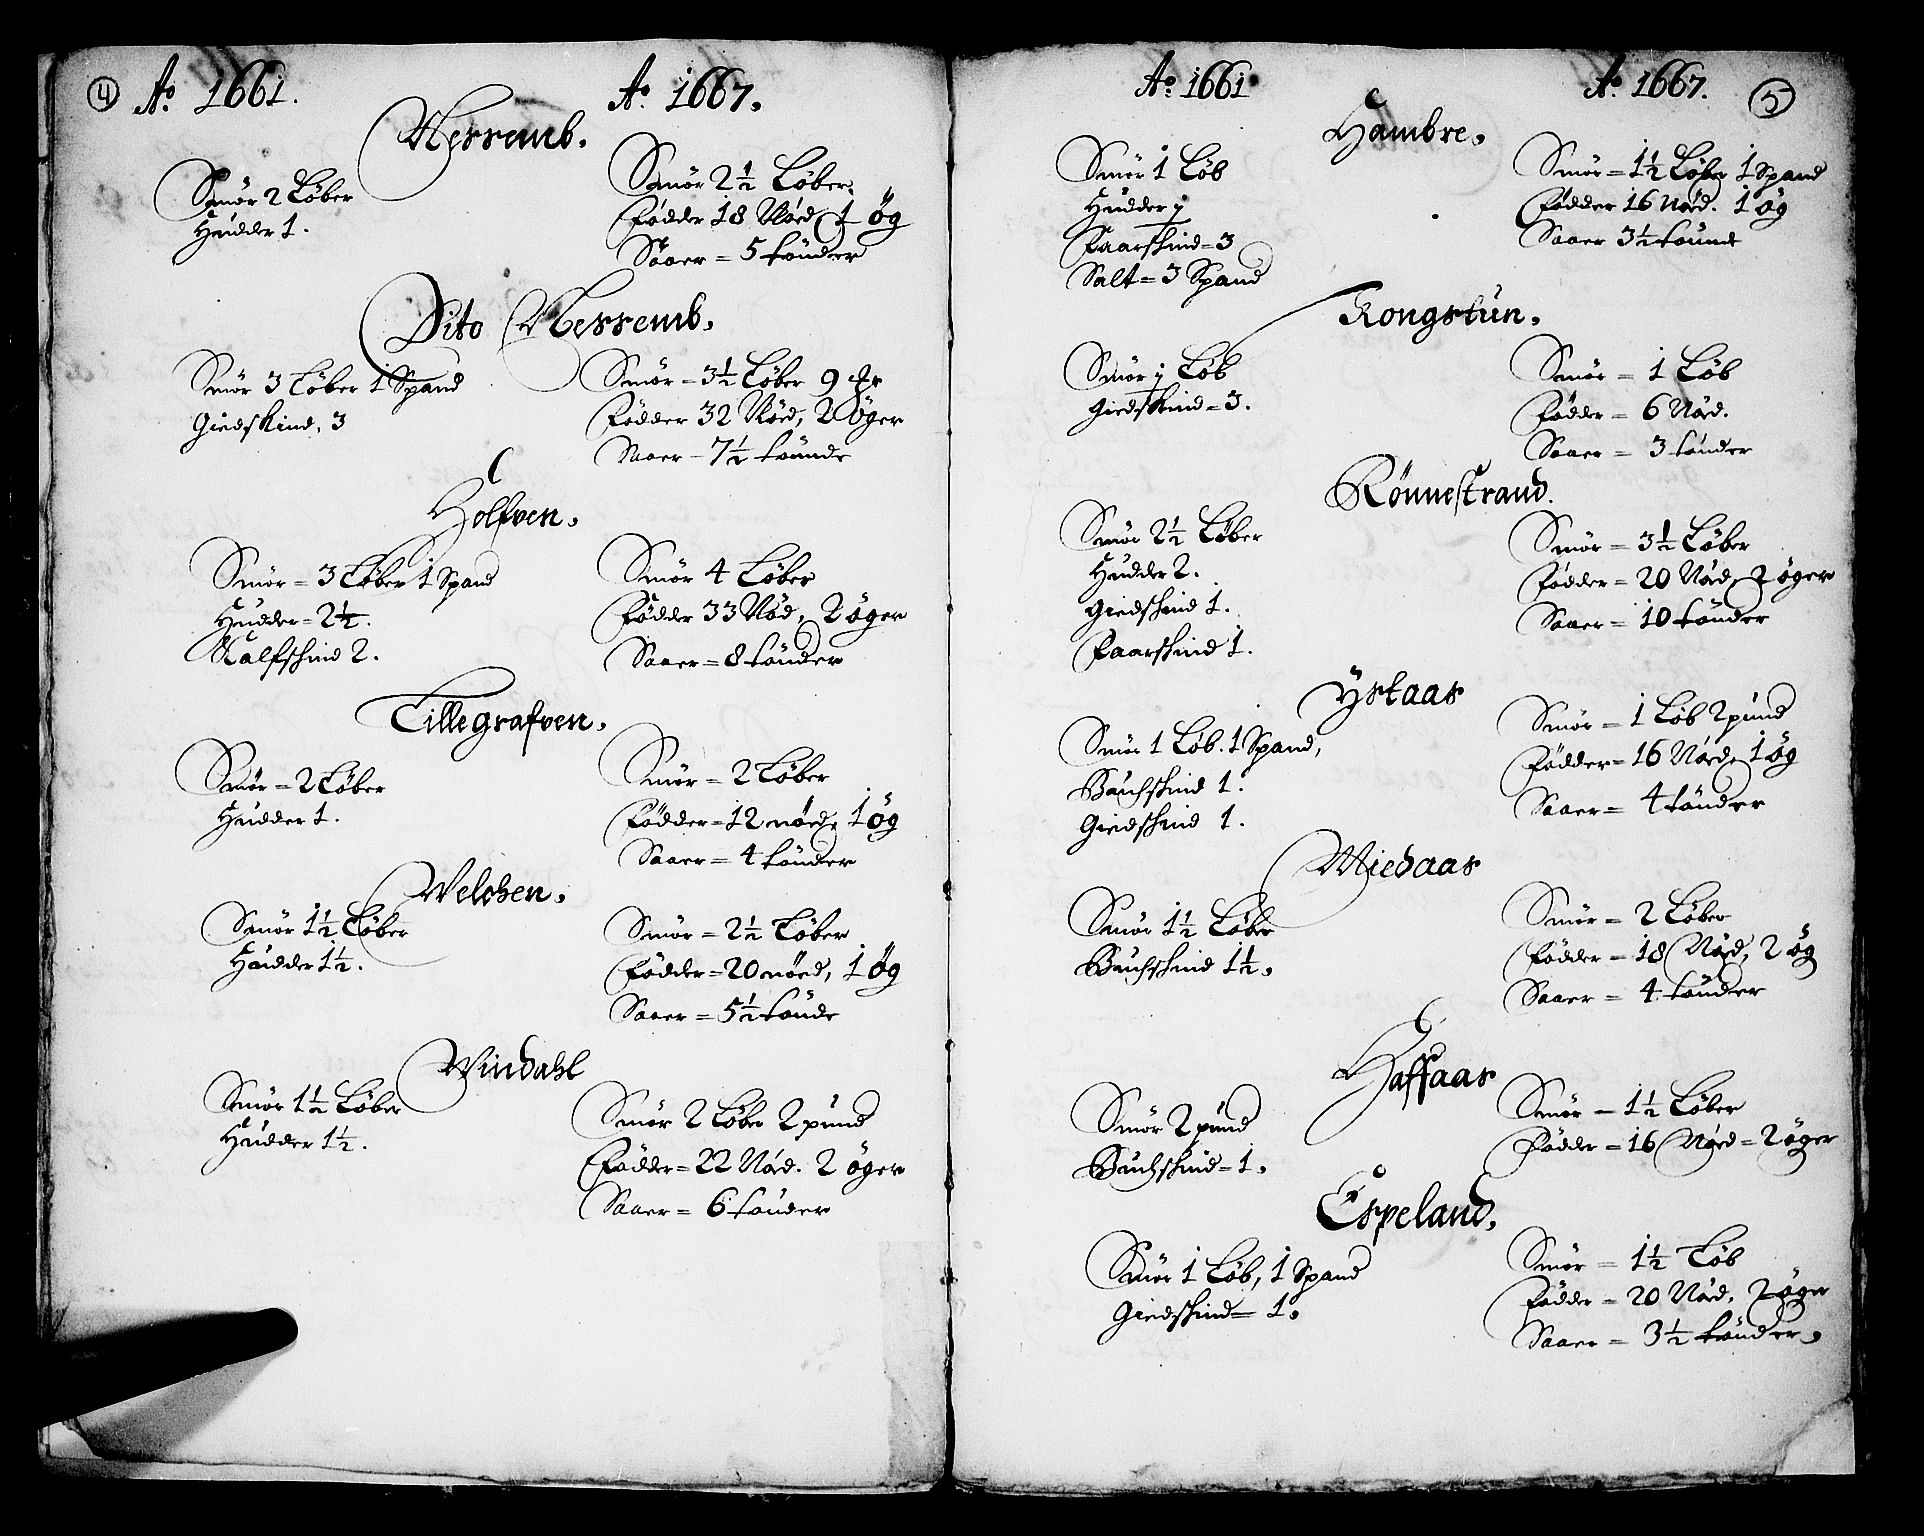 4 Ao. 1661. Ao. 1667.
Nessemb.
Smör 2 Löber
Hudder 1.
Smör 2½ Löber
Födder 18 Nöed 1 Øg
Saaer = 5 tønder
Dito Nessemb.
Smör 3 Löber 1 Spand
Giedskind, 3
Smör = 3½ Löber 9
Födder 32 Nöed, 2 Øger
Saaer - 7½ tønnde
Holfven.
Smör = 3 Löber 1 Spand
Hudder = 2½.
Kalfskind 2.
Smör 4 Löber
Födder 33 Nöd, 2 øger
Saaer = 8 tønder
Tillegrafven.
Smör = 2 Löber
Hudder 1.
Smör = 2 Löber
Födder = 12 nöed, 1 Øg
Saaer = 4 tönder
Welchen.
Smör 1½ Löber
Hudder 1½.
Smör = 2½ Löber
Födder = 20 nöed, 1 Øg
Saaer = 5½ tönde
Windahl
Smör 1½ Löber
Hudder 1½.
Smör 2 Löber 2 pund
Födder = 22 Nöd. 2 øger
Saaer = 6 tönder
Ao. 1661 Ao. 1667. 5
Hambre.
Smör 1 Löb
Hudder j
Faarskind = 3
Salt = 3 Spand
Smör = 1½ Löber 1 Spand
Födder 16 Nöed. 1 øg
Saaer 3½ tounde
Kongstun.
Smör j Löb
Giedskind = 3.
Smör = 1 Löb
Födder = 6 Nöed.
Saaer = 3 tönder
Rönnestrand.
Smör 2½ Löber
Hudder 2.
Giedskind 1.
Faarskind 1.
Smör = 3½ Löber
Födder = 20 Nöed, 2 øger
Saaer = 10 tönder
Ystaas
Smör 1 Löb. 1 Spand,
Buchskind 1.
Giedskind 1.
Smör = 1 Löb 2 pund
Födder = 16 Nöed, 1 øg
Saaer = 4 tönder
Miedaas
Smör 1½ Löber
Buchskind 1½.
Smör = 2 Löber
Födder = 18 Nöed, 2 øg
Saaer = 4 tönder
Haffaas
Smör 2 pund
Buchskind = 1.
Smör = 1½ Löber
Födder = 16 Nöed = 2 øger
Espeland.
Smör 1 Löb, 1 Spand
Giedskind = 1.
Smör = 1½ Löb
Födder = 20 Nöed, 2 øger
Saaer = 3½ tönder.